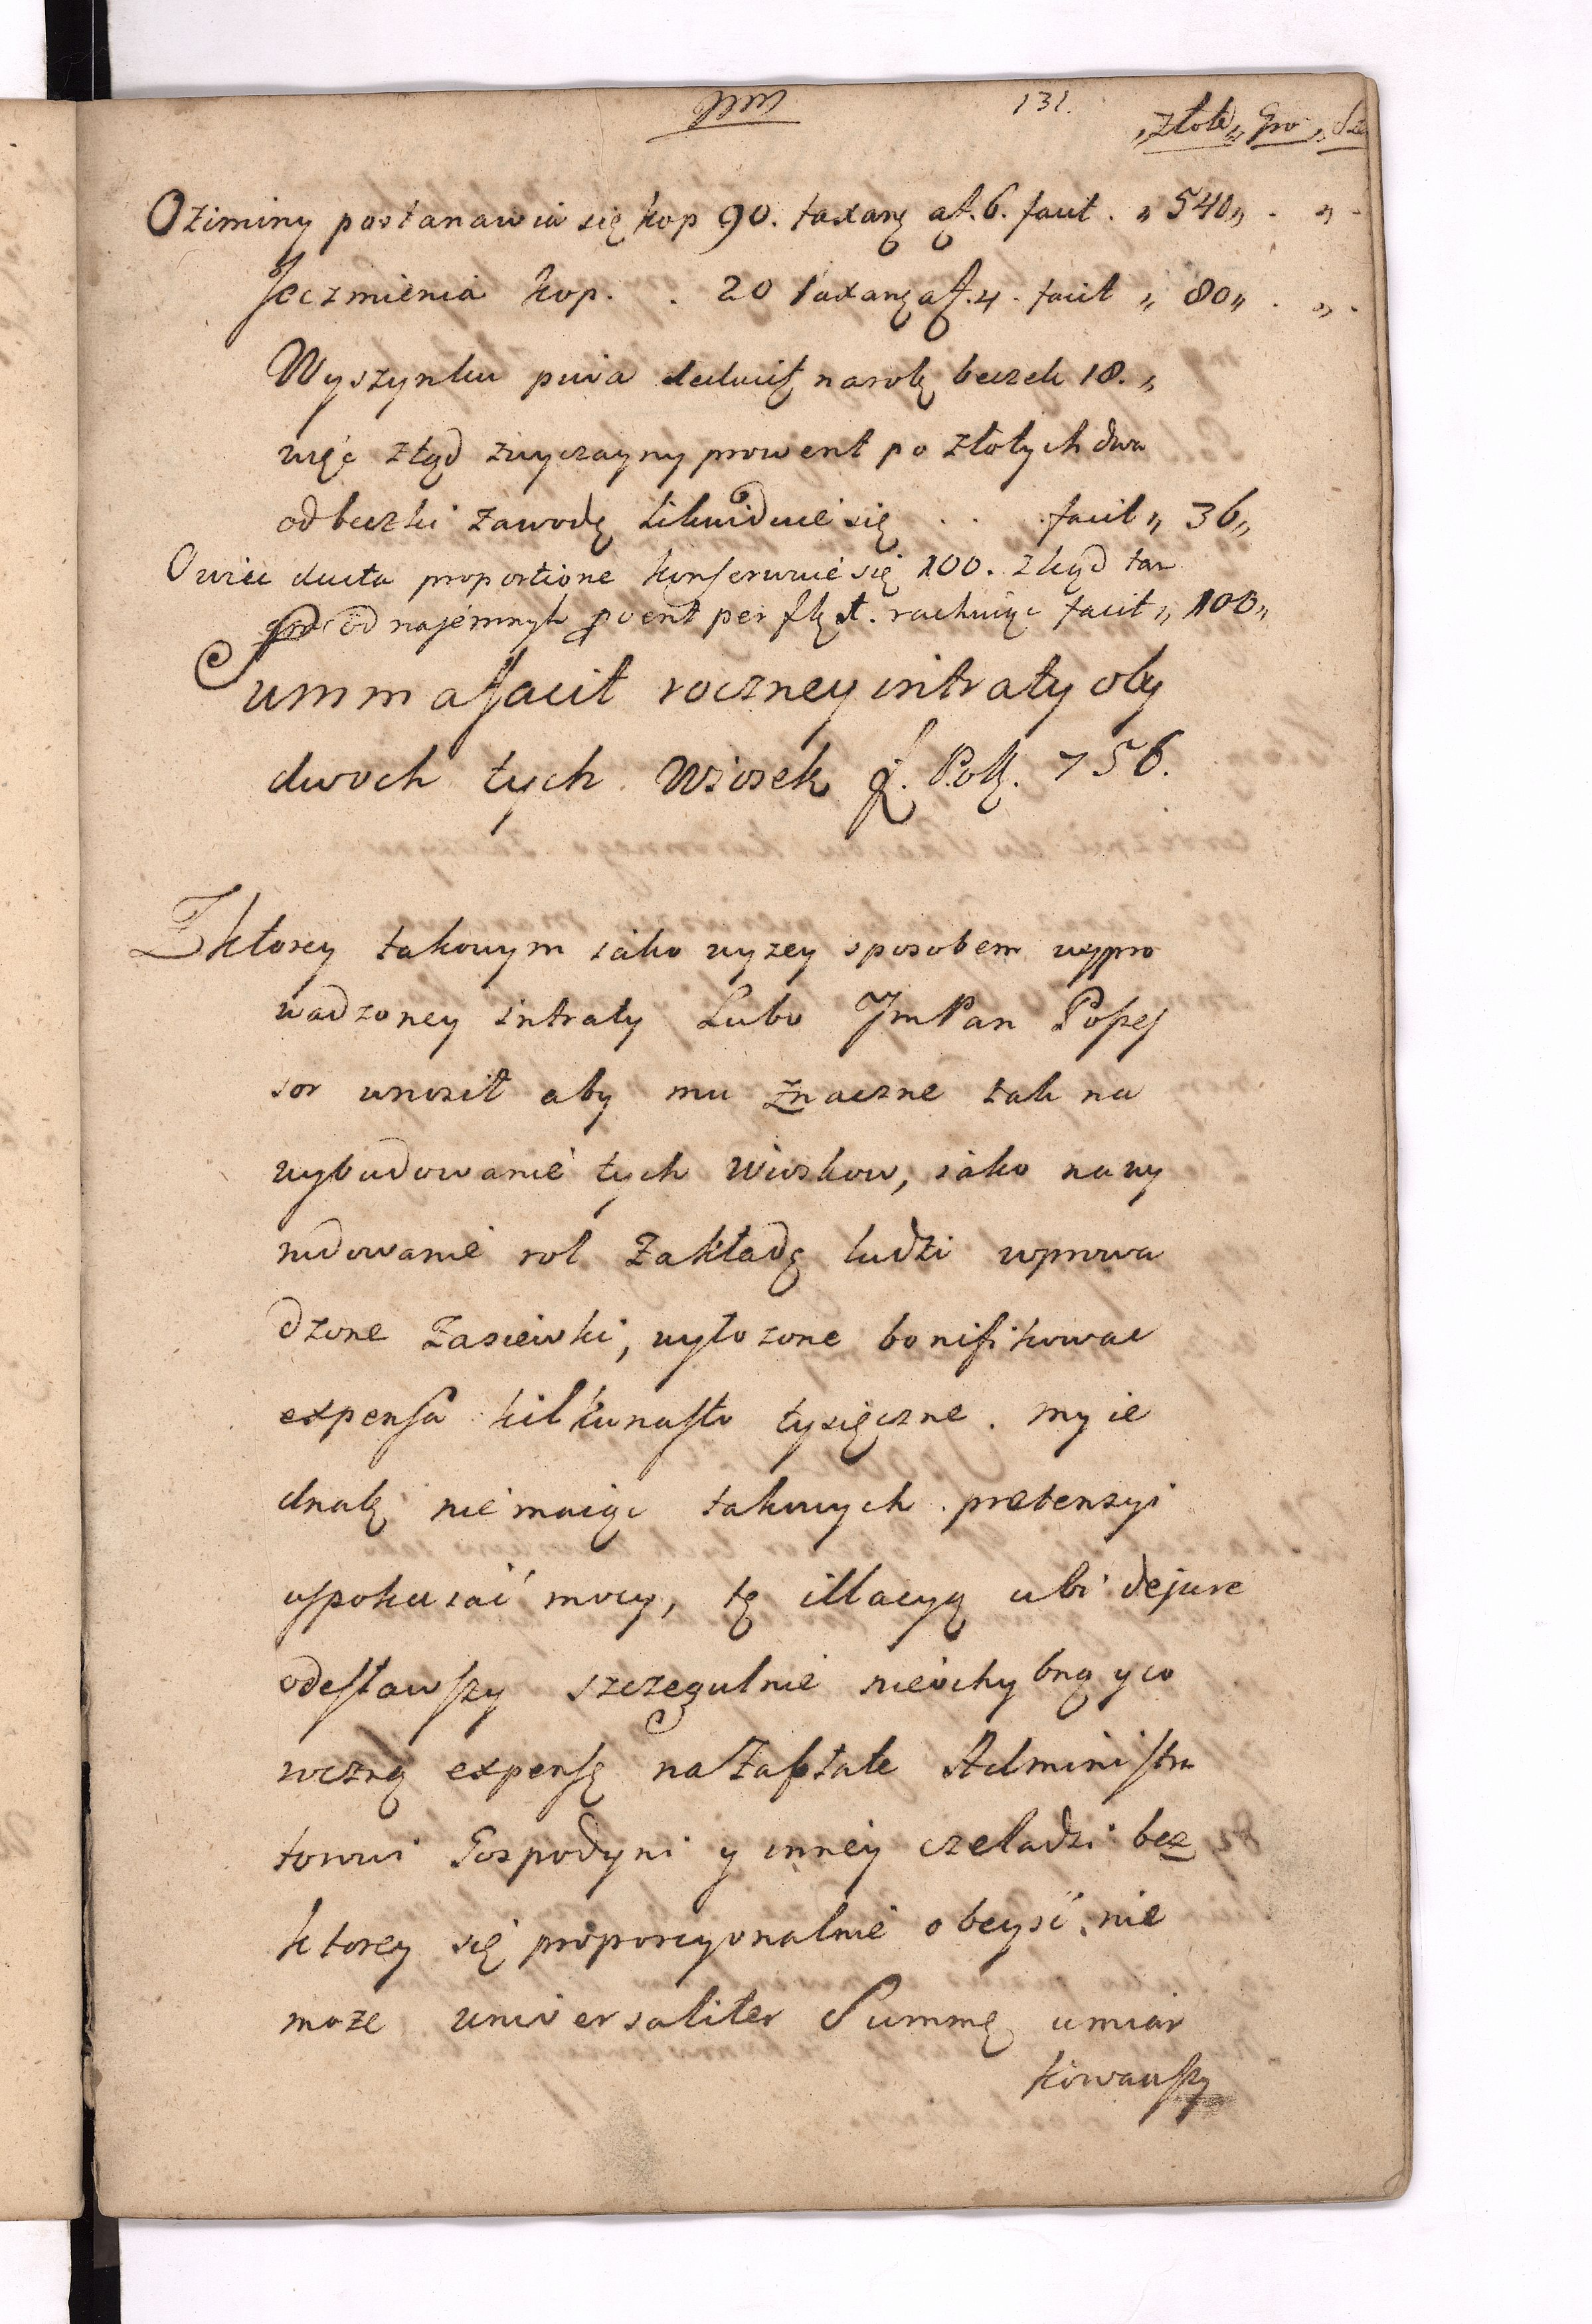 131.
„złote„ Gro „ Sze
Oziminy postanawia się kop 90. taxanę af. 6. facit. „ 540„ . „ .
Jeczmienia kop. . 20 taxanę af. 4. facit „ 80„ . „ .
Wyszynku piwa na rok beczek 18. „
więc ztąd zwyczayny prowent po złotych dwa
od beczki zawodę likwiduie się . . . facit „ 36„
Owiec ducta proportione konserwuie się 100. zkąd tan
od najemnych rachuiąc facit „ 100„
Summa facit roczney intraty oby
dwoch tych Wiosek f. Polk. 756.
Z ktorey takowym iako wyzey sposobem wypro
wadzoney intraty Lubo JmPan Posses
sor wnosit aby mu znaczne tak na
wybudowanie tych Wioskow, iako na wy
nidowanie rol Zakładę ludzi wprowa
dzone Zasiewki, wyłozone bonifikowac
expensa kilkunasto tysięczne. my ie
dnak nie maiąc takowych pretensyi
uspokaiać mocy, tę illacyą ubi de jure
odesławszy szczegulnie nieochybną y co
roczną expensę na Zasłale Administra
torowi Gospodyni y inney czeladzi bez
ktorey się proporcyonalnie obeyść nie
moze universaliter Summę umiar
kowawszy